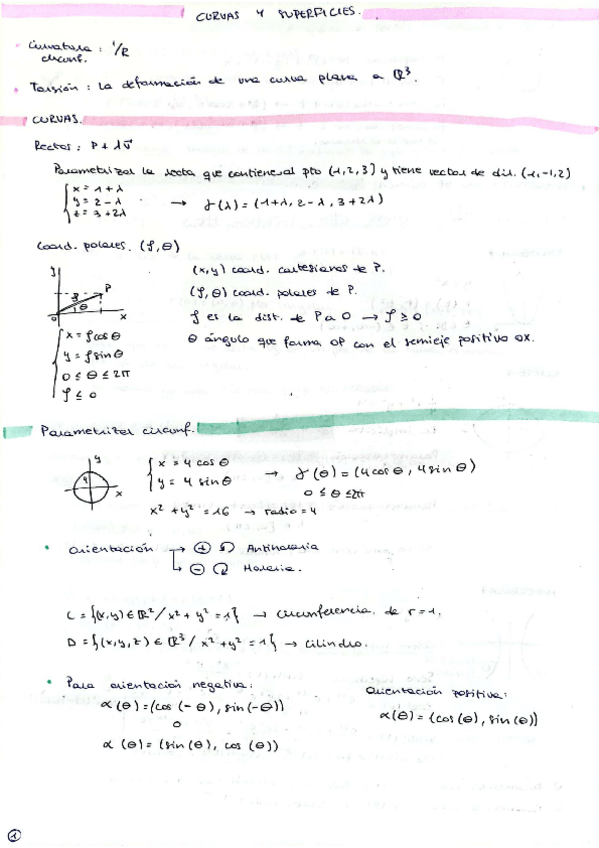 CURVAS Y SUPERFICIES.
Curvatura : 1/R
circunf.
Torsión : la deformación de una curva plana a ℝ³.
CURVAS.
Rectas : P + λv⃗
Parametrizar la recta que contiene al pto (1,2,3) y tiene vector de dir. (1,-1,2)
{ x = 1+λ
y = 2-λ → γ(λ) = (1+λ, 2-λ, 3+2λ)
z = 3+2λ
Coord. polares. (ρ, θ)
y
(x,y) coord. cartesianas de P.
ρ P
(ρ, θ) coord. polares de P.
θ
0 x
ρ es la dist. de P a O → ρ ≥ 0
θ ángulo que forma OP con el semieje positivo OX.
{ x = ρcosθ
y = ρsinθ
0 ≤ θ ≤ 2π
ρ ≤ 0
Parametrizar circunf.
y
4
x
{ x = 4 cos θ
y = 4 sin θ → γ(θ) = (4cos θ, 4 sin θ)
0 ≤ θ ≤ 2π
x² + y² = 16 → radio = 4
• Orientación → ⊕ ↺ Antihoraria
↳ ⊖ ↻ Horaria.
C = {(x,y) ∈ ℝ² / x² + y² = 1} → circunferencia de r = 1.
D = {(x,y,z) ∈ ℝ³ / x² + y² = 1} → cilindro.
• Para orientación negativa:
α(θ) = (cos (-θ), sin(-θ))
o
α (θ) = (sin (θ), cos (θ))
Orientación positiva:
α(θ) = (cos (θ), sin (θ))
1